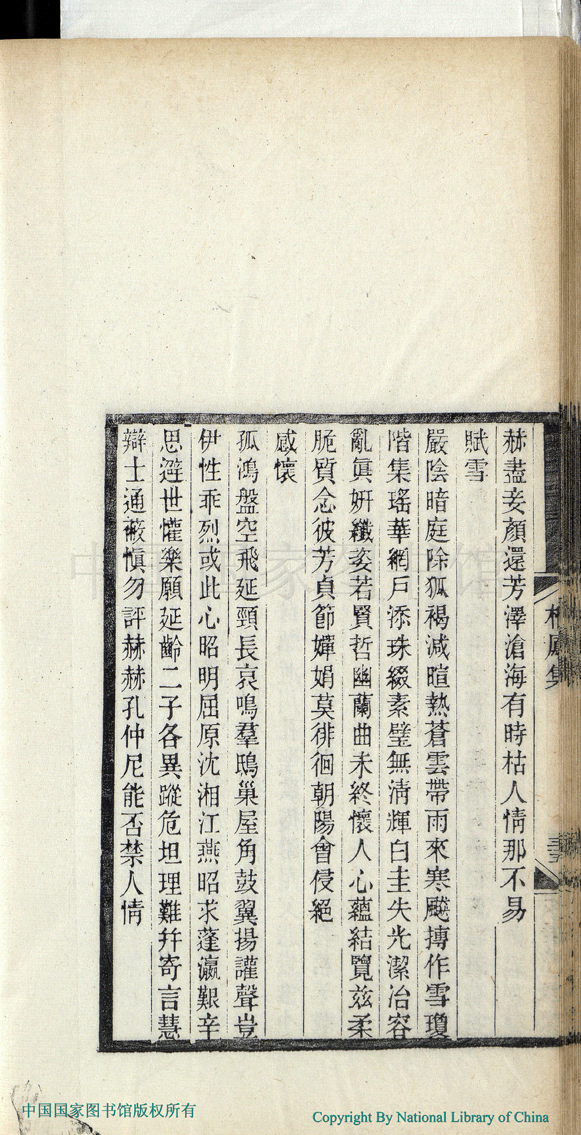 赫盡妾顏還芳澤滄海有時枯人情那不易
賦雪
嚴陰暗庭除狐褐減暄熱蒼雲帶雨來寒飈摶作雪瓊
階集瑤華網戶添珠綴素璧無淸輝白圭失光潔冶容
亂眞妍纖姿若賢哲幽蘭曲未終懷人心蘊結覽茲柔
脆質念彼芳貞節嬋娟莫徘徊朝陽會侵絕
感懷
孤鴻盤空飛延頸長哀鳴羣鴟巢屋角鼓翼揚讙聲豈
伊性乖烈或此心昭明屈原沈湘江燕昭求蓬瀛艱辛
思避世懽樂願延齡二子各異蹤危坦理難幷寄言慧
辯士通蔽愼勿評赫赫孔仲尼能否禁人情
中国国家图书馆
中国国家图书馆版权所有
Copyright By National Library of China